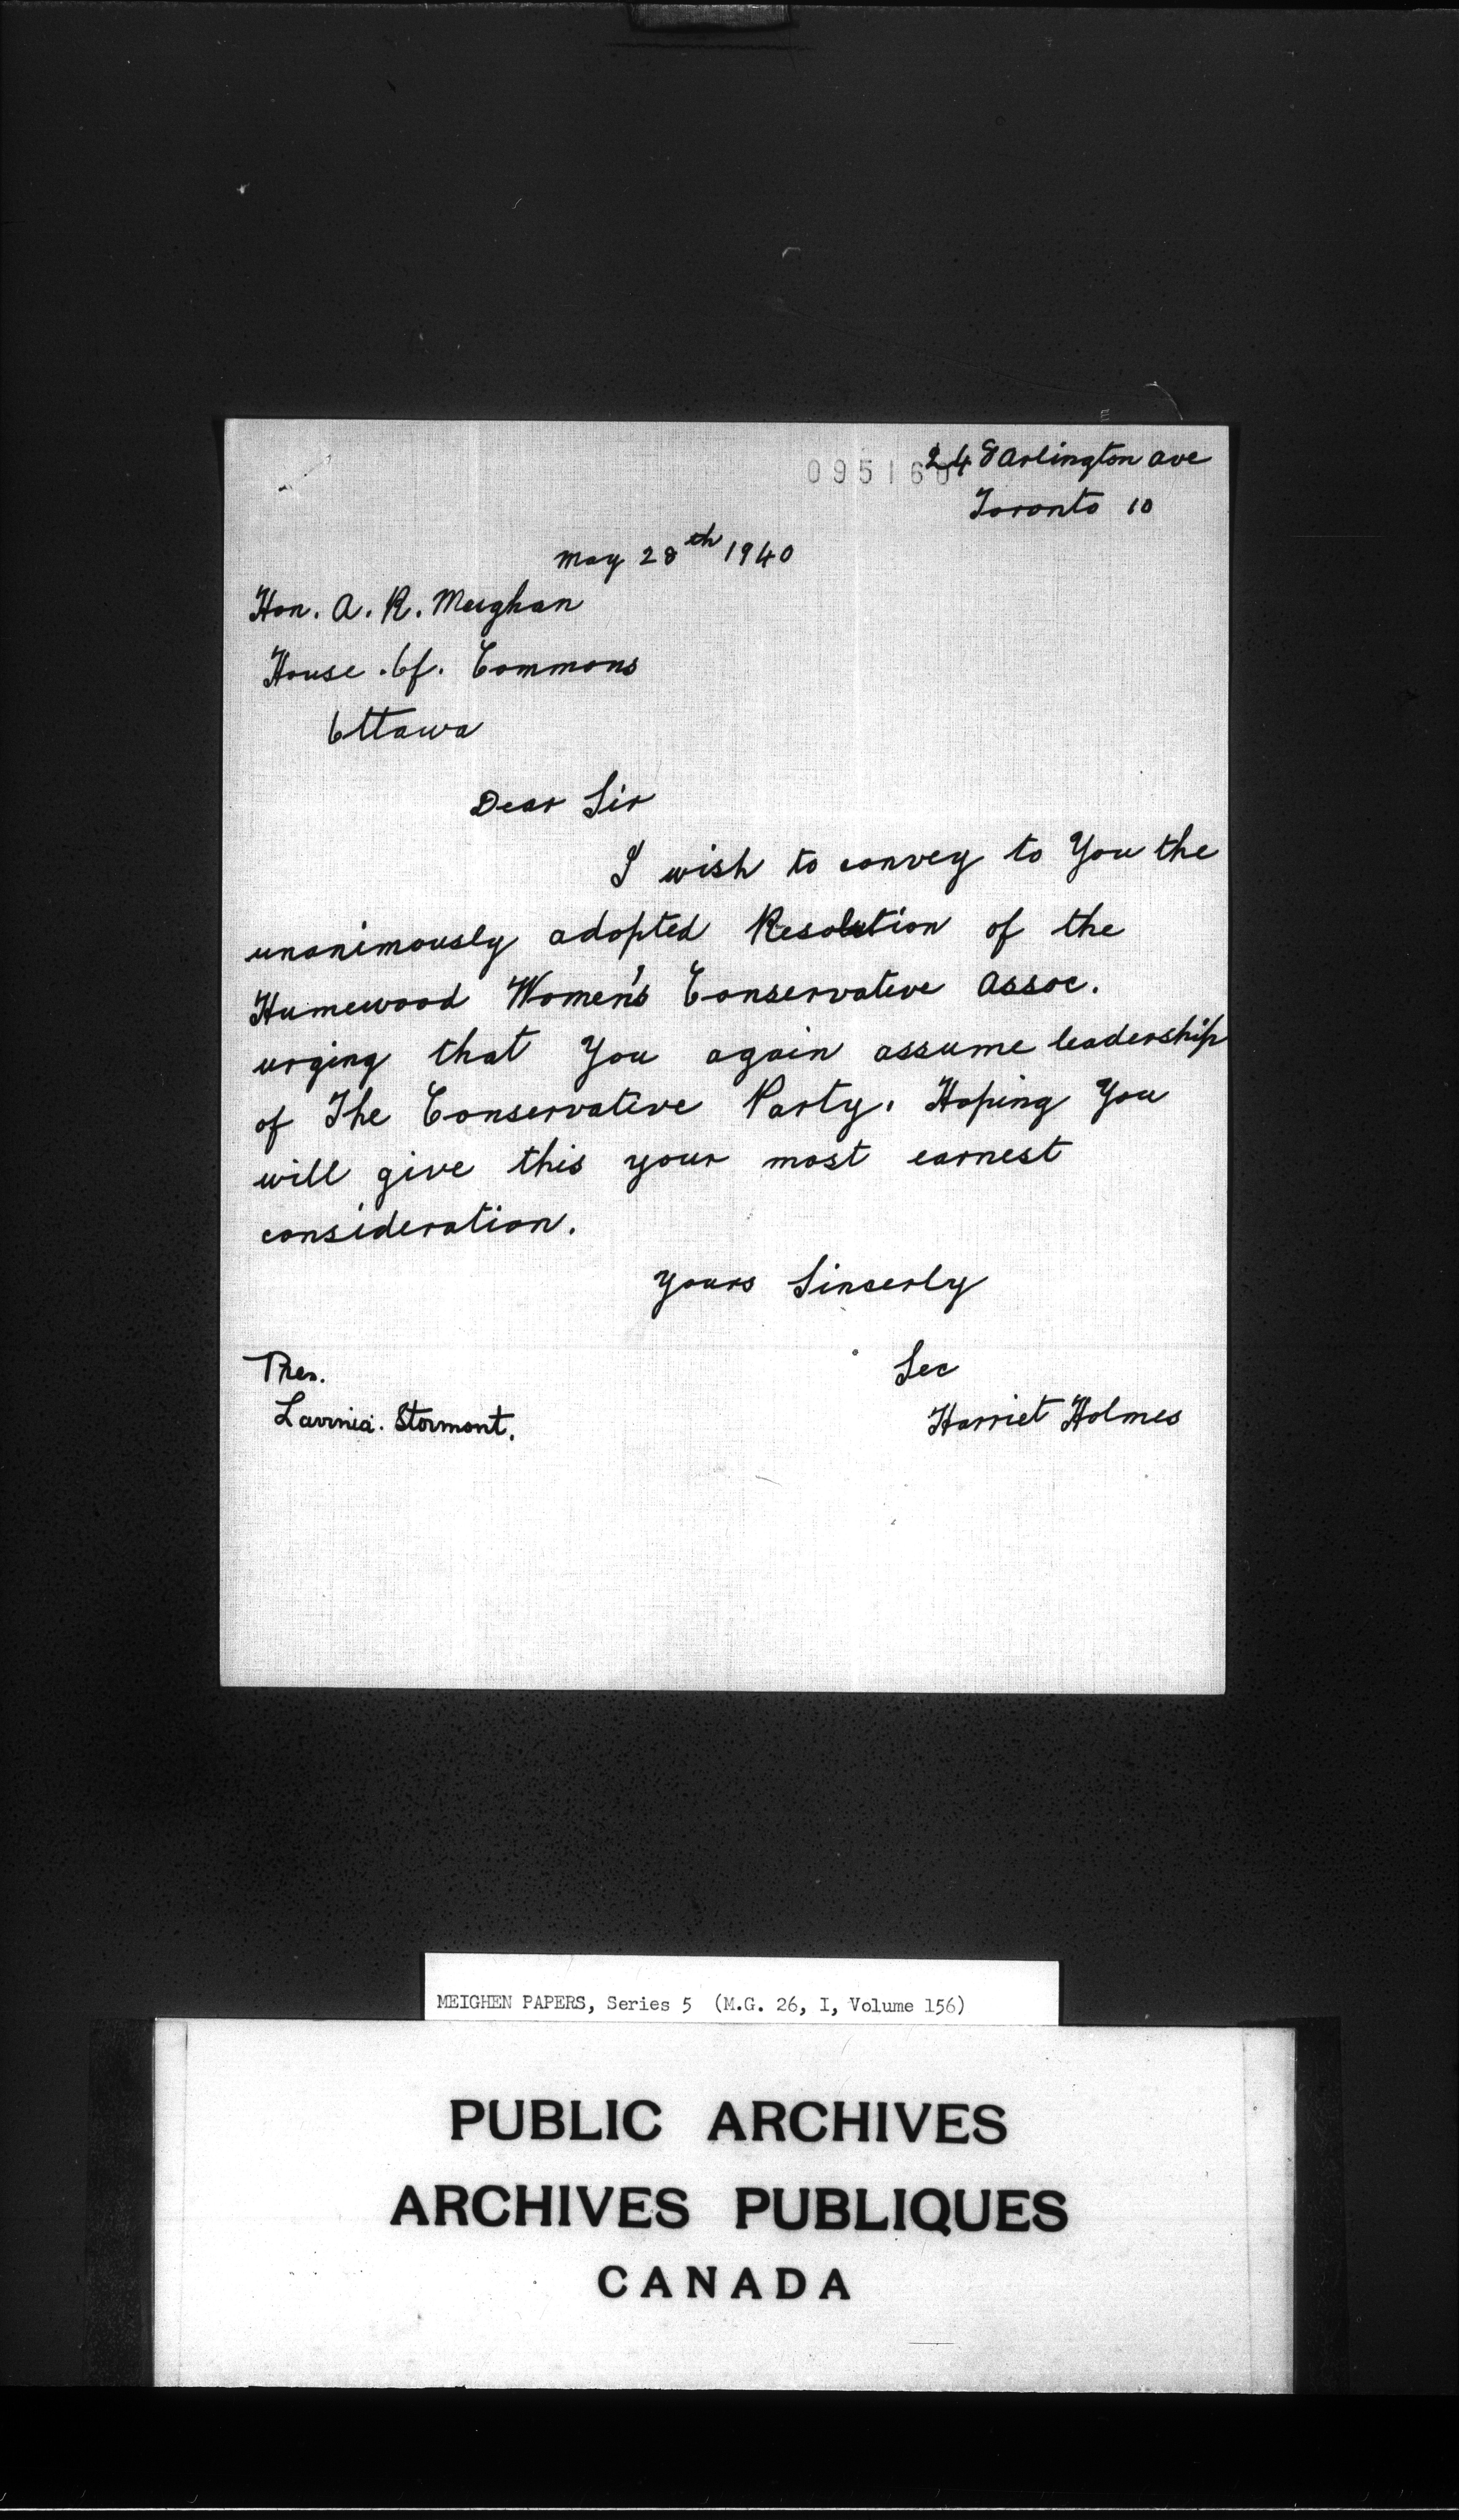 095160
248 Arlington ave
Toronto 10
May 28th 1940
Hon. A. R. Meighan
House .of. Commons
Ottawa
Dear Sir
I wish to convey to You the
unanimously adopted Resolution of the
Humewood Women's Conservative Assoc.
urging that You again assume leadership
of The Conservative Party. Hoping You
will give this your most earnest
consideration.
Yours Sinserly
Sec
Harriet Holmes
Pres.
Lavinia. Stormont.
MEIGHEN PAPERS, Series 5 (M.G. 26, I, Volume 156)
PUBLIC ARCHIVES
ARCHIVES PUBLIQUES
CANADA